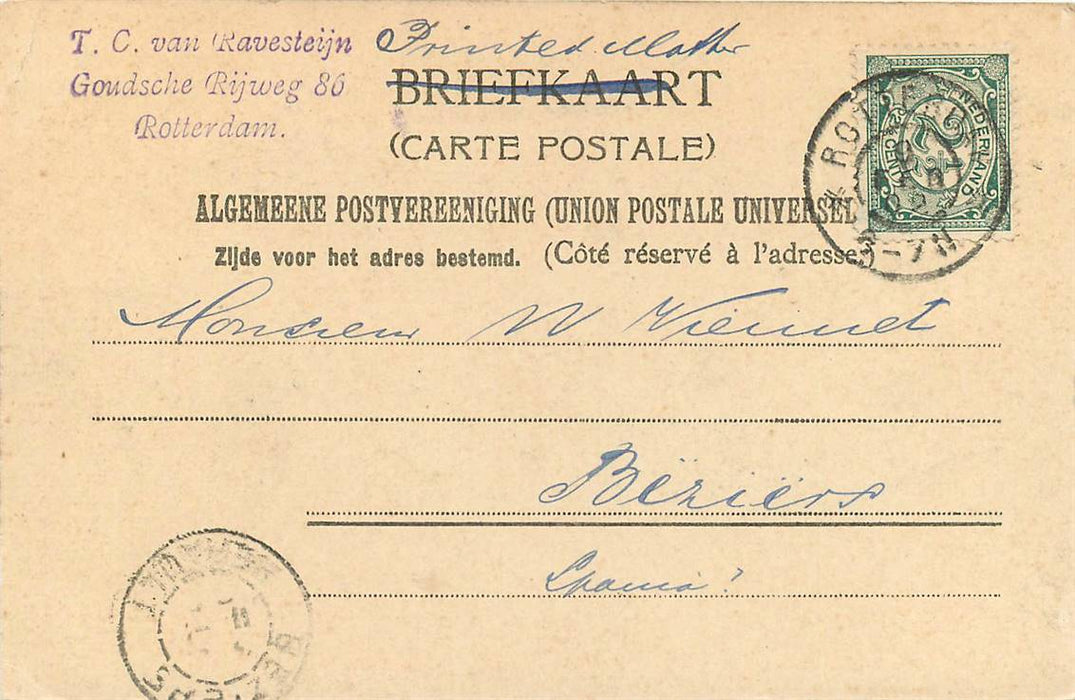 T. C. van Ravesteijn
Goudsche Rijweg 86
Rotterdam.
Printed Matter
BRIEFKAART
(CARTE POSTALE)
ALGEMEENE POSTVEREENIGING (UNION POSTALE UNIVERSEL
Zijde voor het adres bestemd. (Côté réservé à l'adresse)
NEDERLAND
2½ CENT
3-7N
Monsieur W Viennet
Béziers